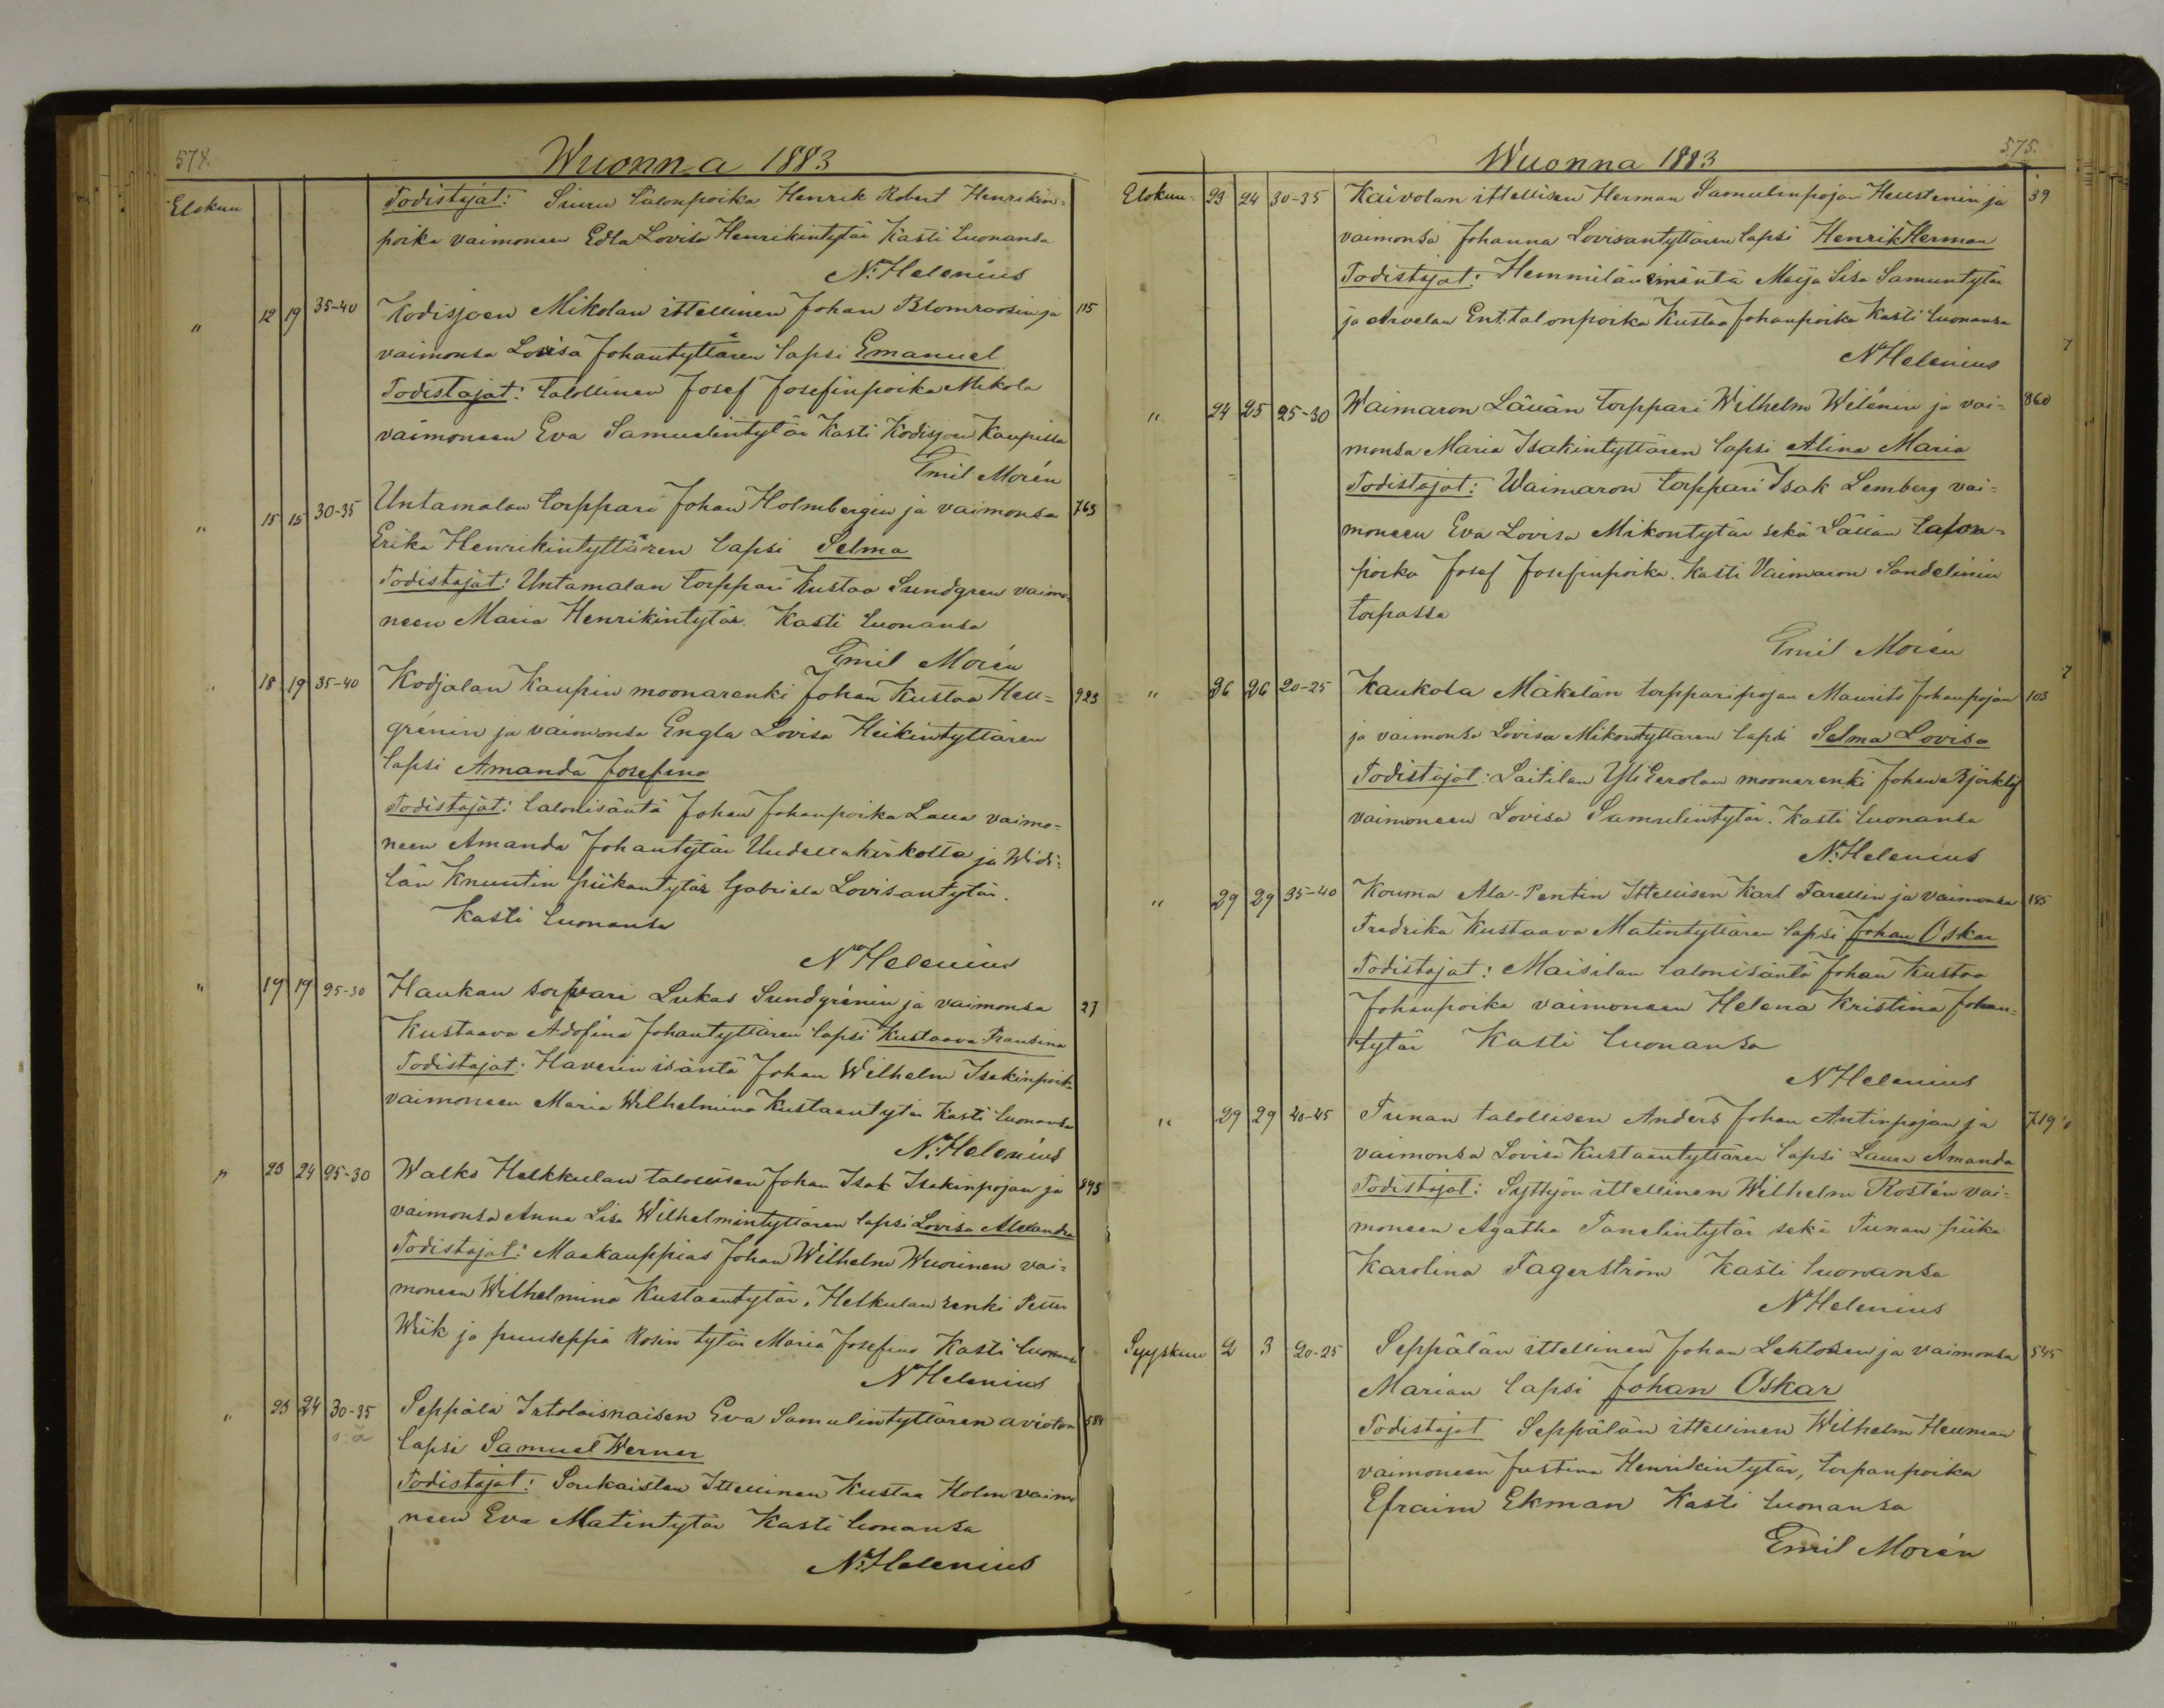 574.
Wuonna 1883
Elokuu
Todistajat: Siuru talonpoika Henrik Robert Henrikin=
poika vaimoneen Edla Lovisa Henrikintytär Kasti luonansa
N. Helenius
" 12 19 35-40 Kodisjoen Mikolan ittellinen Johan Blomroosin ja 115
vaimonsa Lovisa Johantyttären lapsi Emanuel
Todistajat: talollinen Josef Josefinpoika Mikola
vaimoneen Eva Samuelintytär Kasti Kodisjoen Kaupissa
Emil Morén
" 15 15 30-35 Untamalan torppari Johan Holmbergin ja vaimonsa 763
Erika Henrikintyttären lapsi Selma
Todistajat: Untamalan torppari Kustaa Sundgren vaimo=
neen Maria Henrikintytär. Kasti luonansa
Emil Morén
" 18 19 35-40 Kodjalan Kaupin moonarenki Johan Kustaa Heu= 923
grénin ja vaimonsa Engla Lovisa Heikintyttären
lapsi Amanda Josefina
Todistajat: talonisäntä Johan Johanpoika Laua vaimo=
neen Amanda Johantytär Uudeltakirkolta ja Widi=
län Knuutin piikantytär Gabriela Lovisantytär.
Kasti luonansa
N Helenius
" 19 19 25-30 Haukan torppari Lukas Sundgrénin ja vaimonsa 27
Kustaava Adofina Johantyttären lapsi Kustaava Fransina
Todistajat: Haverin isäntä Johan Wilhelm Isakinpoika
vaimoneen Maria Wilhelmina Kustaantytär Kasti luonansa
N. Helenius
" 23 24 25-30 Walko Helkkulan talollisen Johan Isak Isakinpojan ja 895
vaimonsa Anna Lisa Wilhelmintyttären lapsi Lovisa Alexandra
Todistajat: Maakauppias Johan Wilhelm Wuorinen vai=
moneen Wilhelmina Kustaantytär, Helkulan renki Petter
Wiik ja puuseppä Rosin tytär Maria Josefina Kasti luonansa
N Helenius
" 23 24 30-35 Seppälä Irtolaisnaisen Eva Samulintyttären avioton 584
lapsi Samuel Werner
Todistajat: Soukaisten Ittellinen Kustaa Holm vaimo
neen Eva Matintytär Kasti luonansa
N. Helenius
575.
Wuonna 1883
Elokuu 23 24 30-35 Kaivolan ittellisen Herman Samulinpojan Heustenin ja 39
vaimonsa Johanna Lovisantyttären lapsi Henrik Herman
Todistajat: Hemmilän emäntä Maija Lisa Samuntytär
ja Arvelan Ent. talonpoika Kustaa Johanpoika Kasti luonansa
N Helenius
" 24 25 25-30 Waimaron Läuän torppari Wilhelm Wilénin ja vai= 860
monsa Maria Isakintyttären lapsi Alina Maria
Todistajat: Waimaron torppari Isak Lemberg vai=
moneen Eva Lovisa Mikontytär sekä Läuän talon=
poika Josef Josefinpoika. Kasti Vaimaron Sandelinin
torpassa
Emil Morén
" 26 26 20-25 Kaukola Mäkelän torpparipojan Maurits Johanpojan 103
ja vaimonsa Lovisa Mikontyttären lapsi Selma Lovisa
Todistajat: Laitilan Yli Eerolan moonarenki Johan Björklöf
vaimoneen Lovisa Samulintytär. Kasti luonansa
N. Helenius
" 29 29 35-40 Kouma Ala-Pentin Ittellisen Karl Farellin ja vaimonsa 185
Fredrika Kustaava Matintyttären lapsi Johan Oskar
Todistajat: Maisilan talonisäntä Johan Kustaa
Johanpoika vaimoneen Helena Kristina Johan=
tytär Kasti luonansa
N Helenius
" 29 29 40-45 Tunan talollisen Anders Johan Antinpojan ja 719
vaimonsa Lovisa Kustaantyttären lapsi Laura Amanda
Todistajat: Syttyön ittellinen Wilhelm Rostén vai=
moneen Agatha Tanelintytär sekä Tunan piika
Karolina Fagerström Kasti luonansa
N Helenius
Syyskuu 2 3 20-25 Seppälän ittellinen Johan Lehtosen ja vaimonsa 545
Marian lapsi Johan Oskar
Todistajat Seppälän ittellinen Wilhelm Heuman
vaimoneen Justina Henrikintytär, torpanpoika
Efraim Ekman Kasti luonansa
Emil Morén